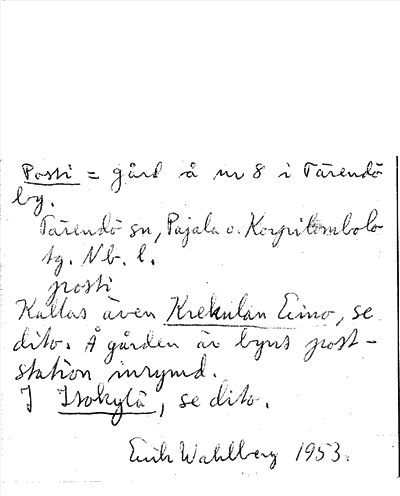 Posti = gård å nr 8 i Tärendö
by.
Tärendö sn, Pajala o. Korpilombolo
tg. Nb. l.
posti
Kallas även Krekulan Eino, se
dito. Å gården är byns post-
station inrymd.
I Isokylä, se dito.
Erik Wahlberg 1953.